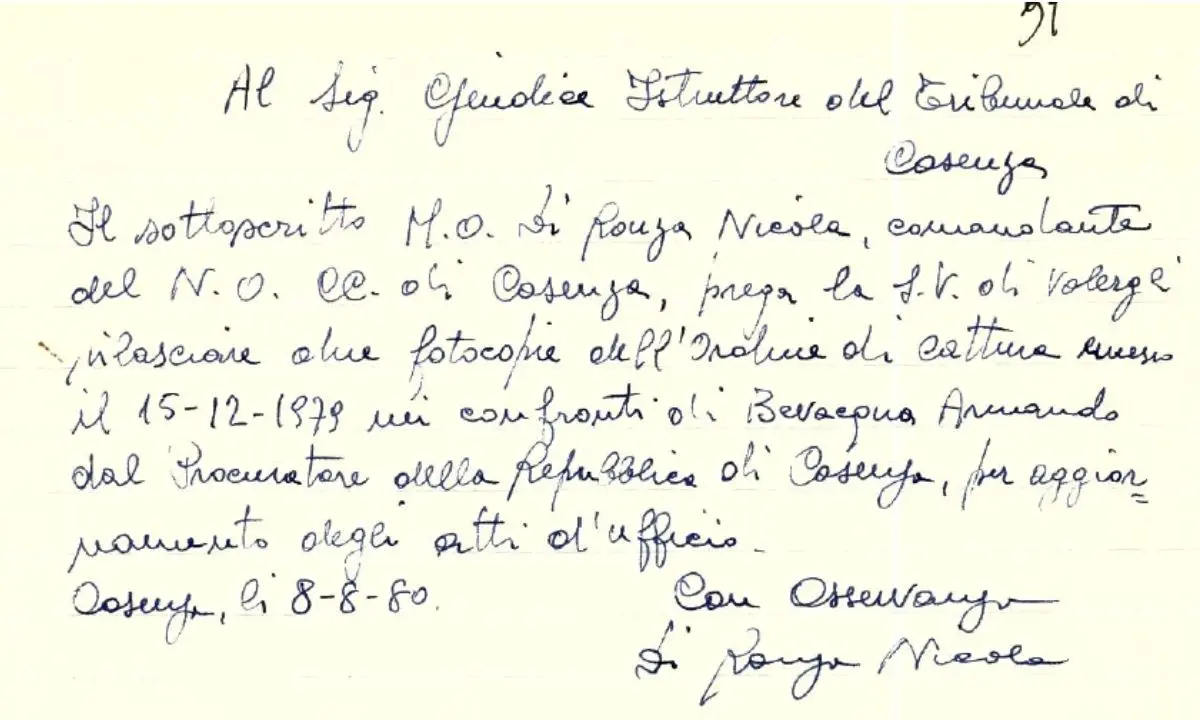 91
Al Sig. Giudice Istruttore del Tribunale di
Cosenza
Il sottoscritto M.O. Di Ronza Nicola, comandante
del N.O. CC. di Cosenza, prega la S.V. di volergli
rilasciare due fotocopie dell'Ordine di cattura emesso
il 15-12-1979 nei confronti di Bevacqua Armando
dal Procuratore della Repubblica di Cosenza, per aggior=
namento degli atti d'ufficio.
Cosenza, li 8-8-80.
Con Osservanza
Di Ronza Nicola